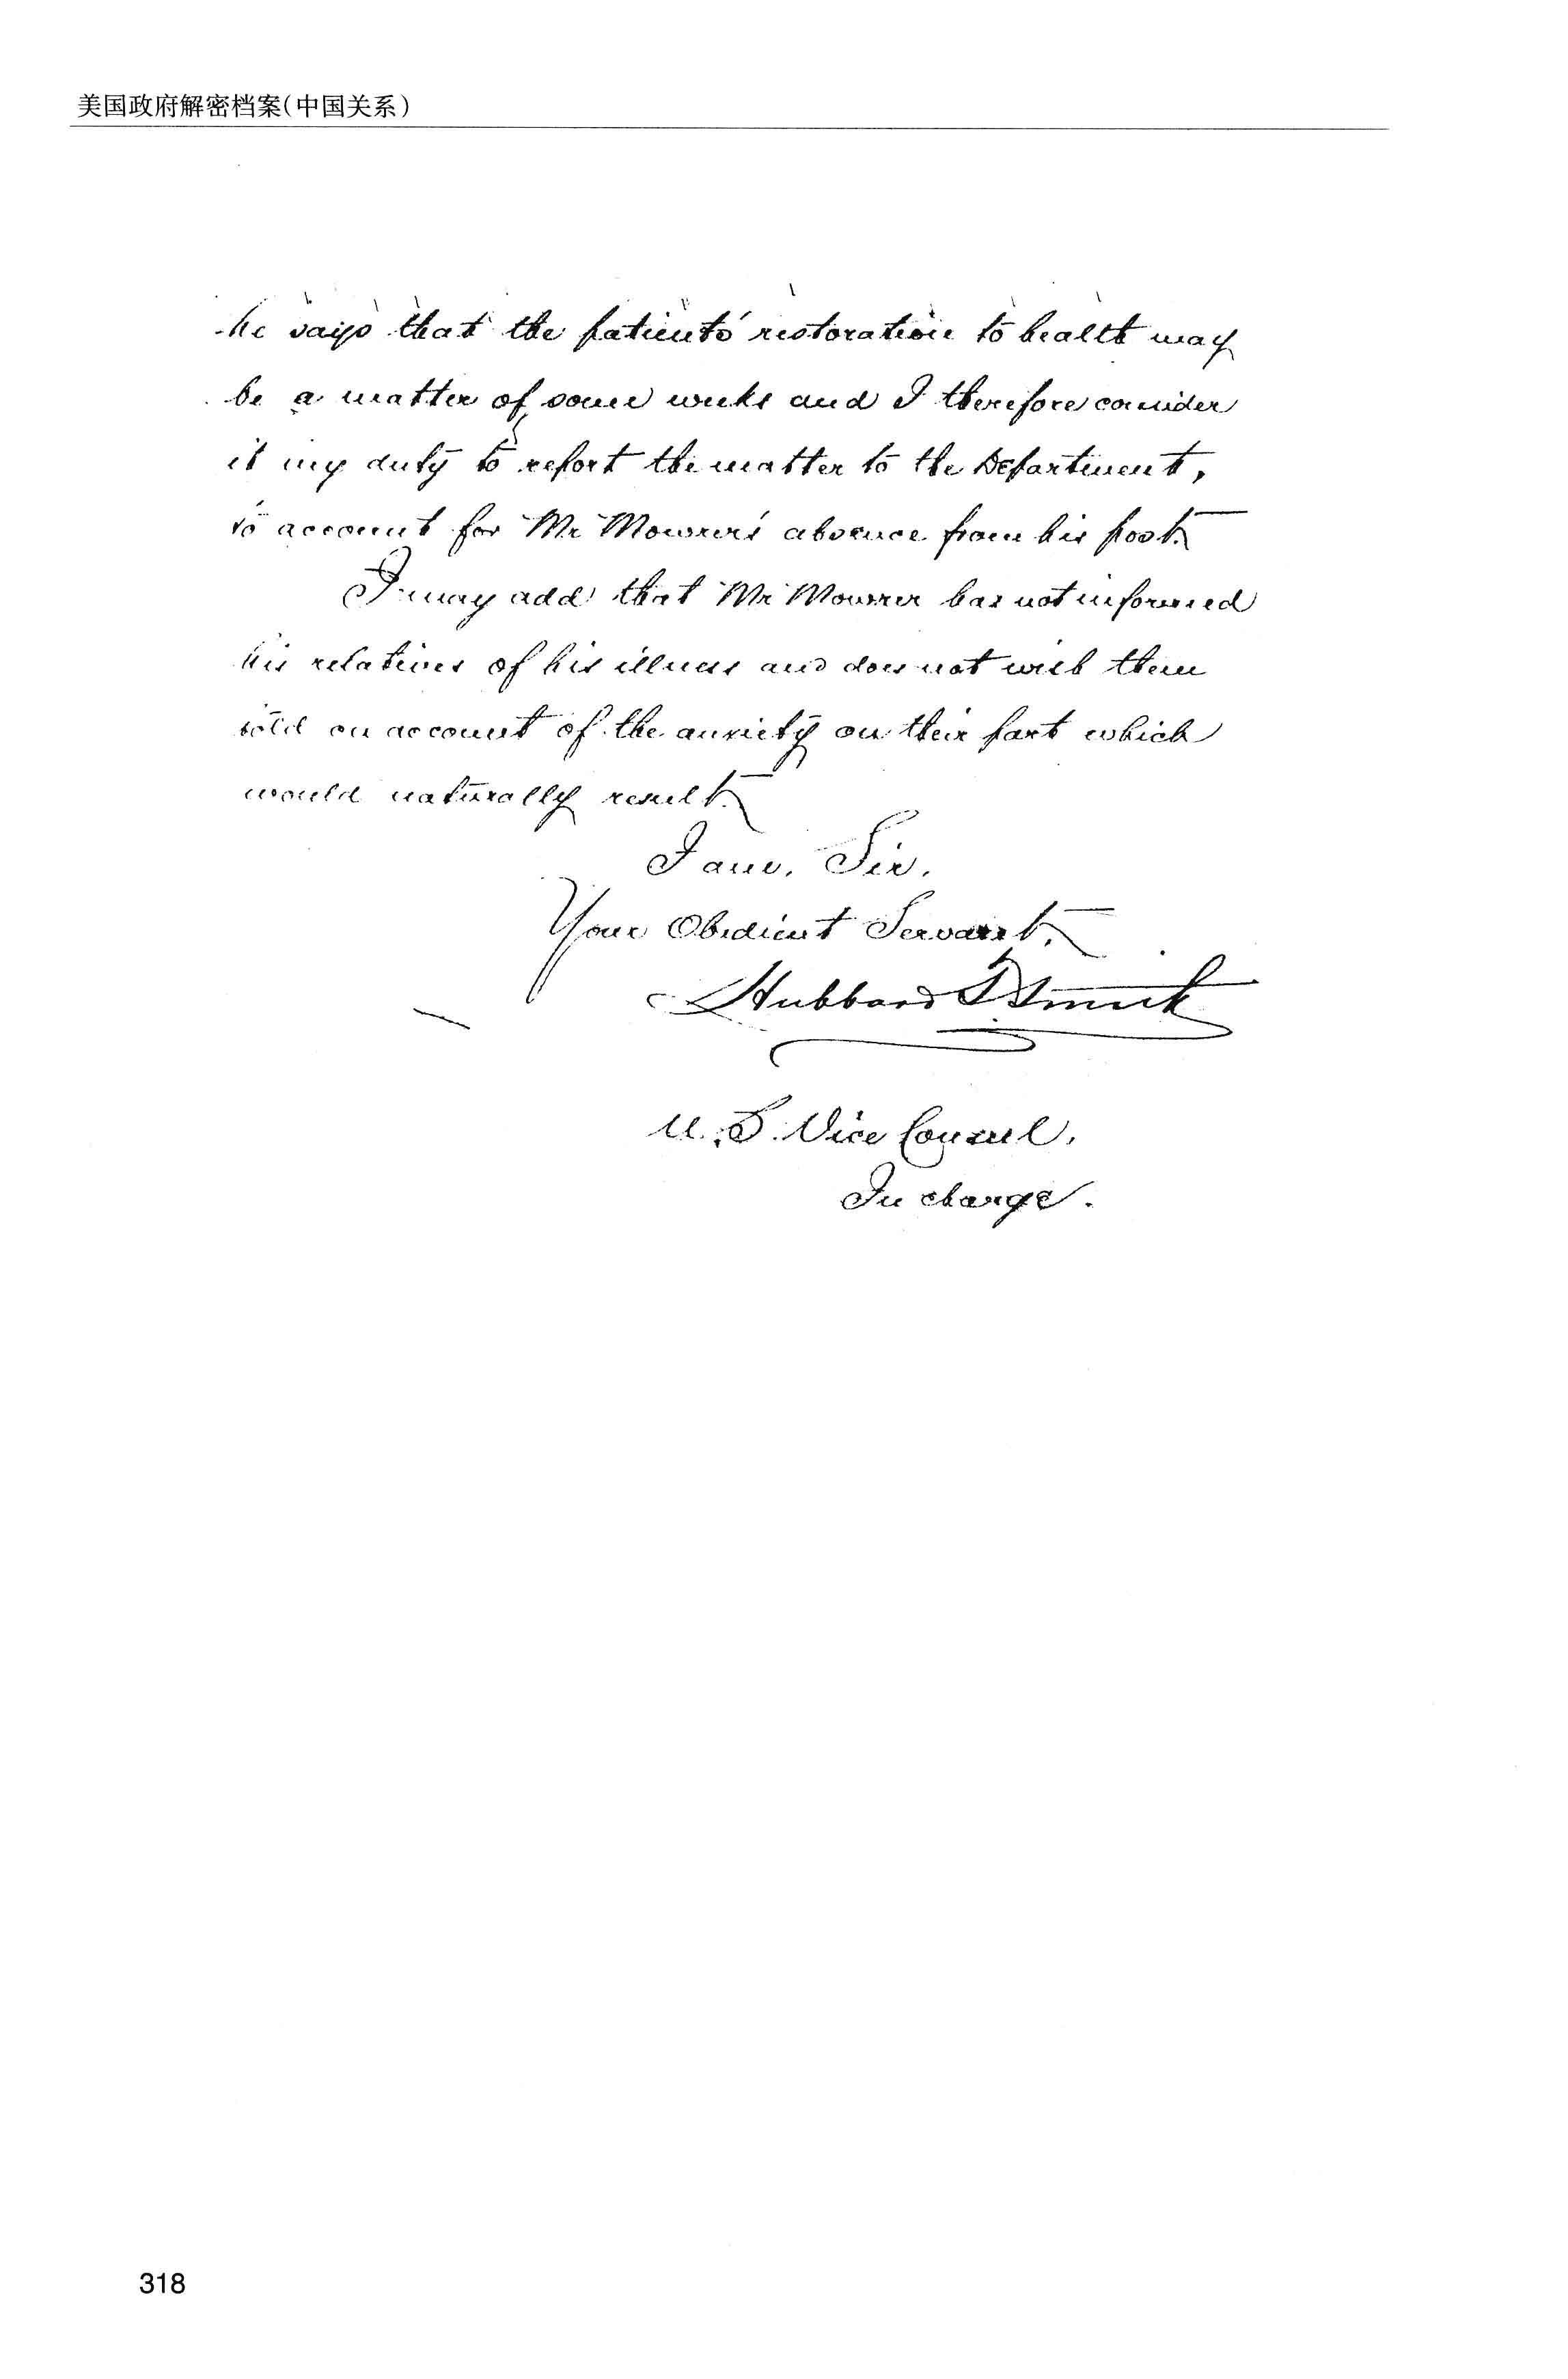 美国政府解密档案(中国关系)
he says that the patients' restoration to health may
be a matter of some weeks and I therefore consider
it my duty to report the matter to the Department,
to account for Mr Mowrer's absence from his post.
I may add that Mr Mowrer has not informed
his relatives of his illness and does not wish them
told on account of the anxiety on their part which
would naturally result.
I am, Sir,
Your Obedient Servant,
Hubbard T Smith
U.S. Vice Consul,
In charge.
318